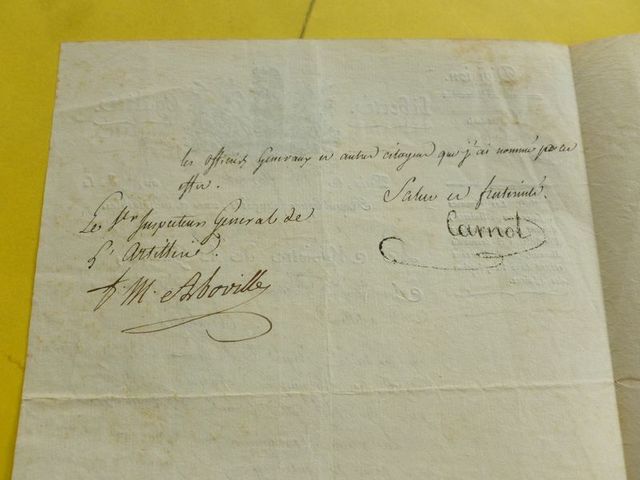 les officiers Generaux et autres citoyens que j'ai nommé par cet
offre.
Salut et fraternité.
Carnot
Le 1er Inspecteur General de
L'Artillerie
f. M. Aboville